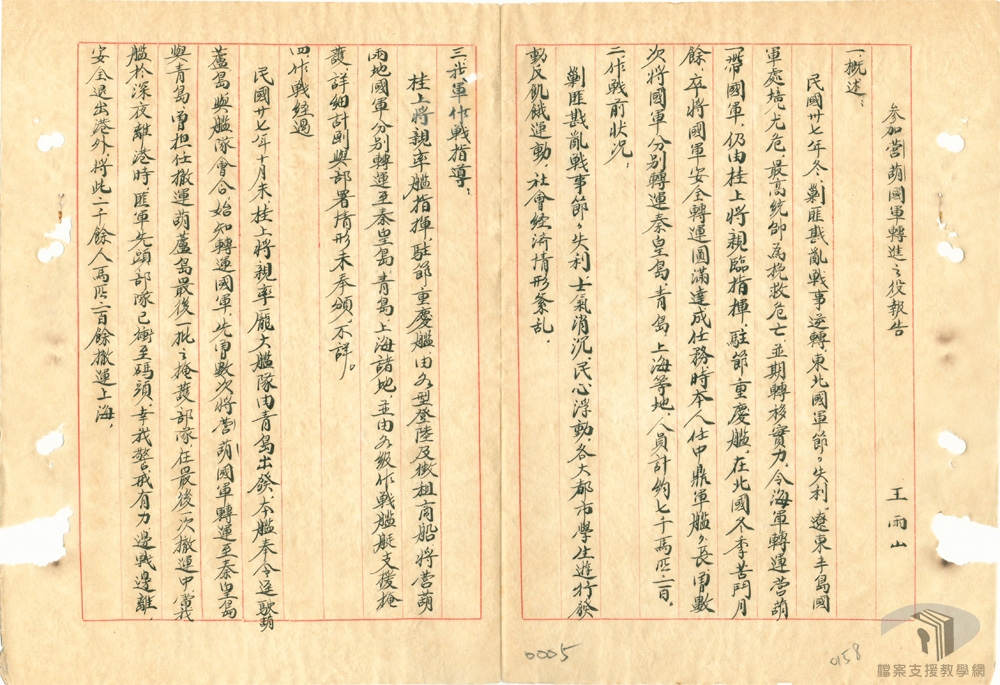 參加營葫國軍轉進之役報告
王雨山
一、概述：
民國卅七年冬、剿匪戡亂戰事逆轉、東北國軍節々失利、遼東半島國
軍處境尤危、最高統帥為挽救危亡、並期轉移實力、令海軍轉運營葫
一帶國軍、仍由桂上將親臨指揮、駐節重慶艦、在北國冬季苦鬥月
餘、卒將國軍安全轉運圓滿達成任務、時本人任中鼎軍艦々長、曾數
次將國軍分別轉運秦皇島、青島、上海等地、人員計約七千、馬匹二百。
二、作戰前狀況：
剿匪戡亂戰事節々失利、士氣消沉、民心浮動、各大都市學生遊行發
動反飢餓運動、社會經濟情形紊亂。
三、我軍作戰指導：
桂上將親率艦指揮、駐節重慶艦、由各型登陸及徵租商船將營葫
兩地國軍分別轉運至秦皇島、青島、上海諸地、並由各級作戰艦艇支援掩
護、詳細計劃與部署情形未奉頒、不詳。
四、作戰經過
民國卅七年十月末、桂上將親率龐大艦隊由青島出發、本艦奉令逕駛葫
蘆島與艦隊會合、始知轉運國軍、先曾數次將營葫國軍轉運至秦皇島
與青島、曾担任撤運葫蘆島最後一批之掩護部隊、在最後一次撤運中、當我
艦於深夜離港時匪軍先頭部隊已衝至碼頭、幸我警戒有力、邊戰邊離、
安全退出港外、將此二千餘人馬匹二百餘撤運上海。
0005
0158
檔案支援教學網